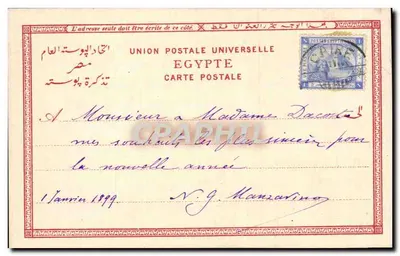 L'adresse seule doit être écrite de ce côté.
UNION POSTALE UNIVERSELLE
اتحاد البوستة العام
EGYPTE
مصر
CARTE POSTALE
تذكرة بوستة
A Monsieur & Madame Dacosta
mes souhaits les plus sincères pour
la nouvelle année
1 Janvier 1899 N. G. Manzavino